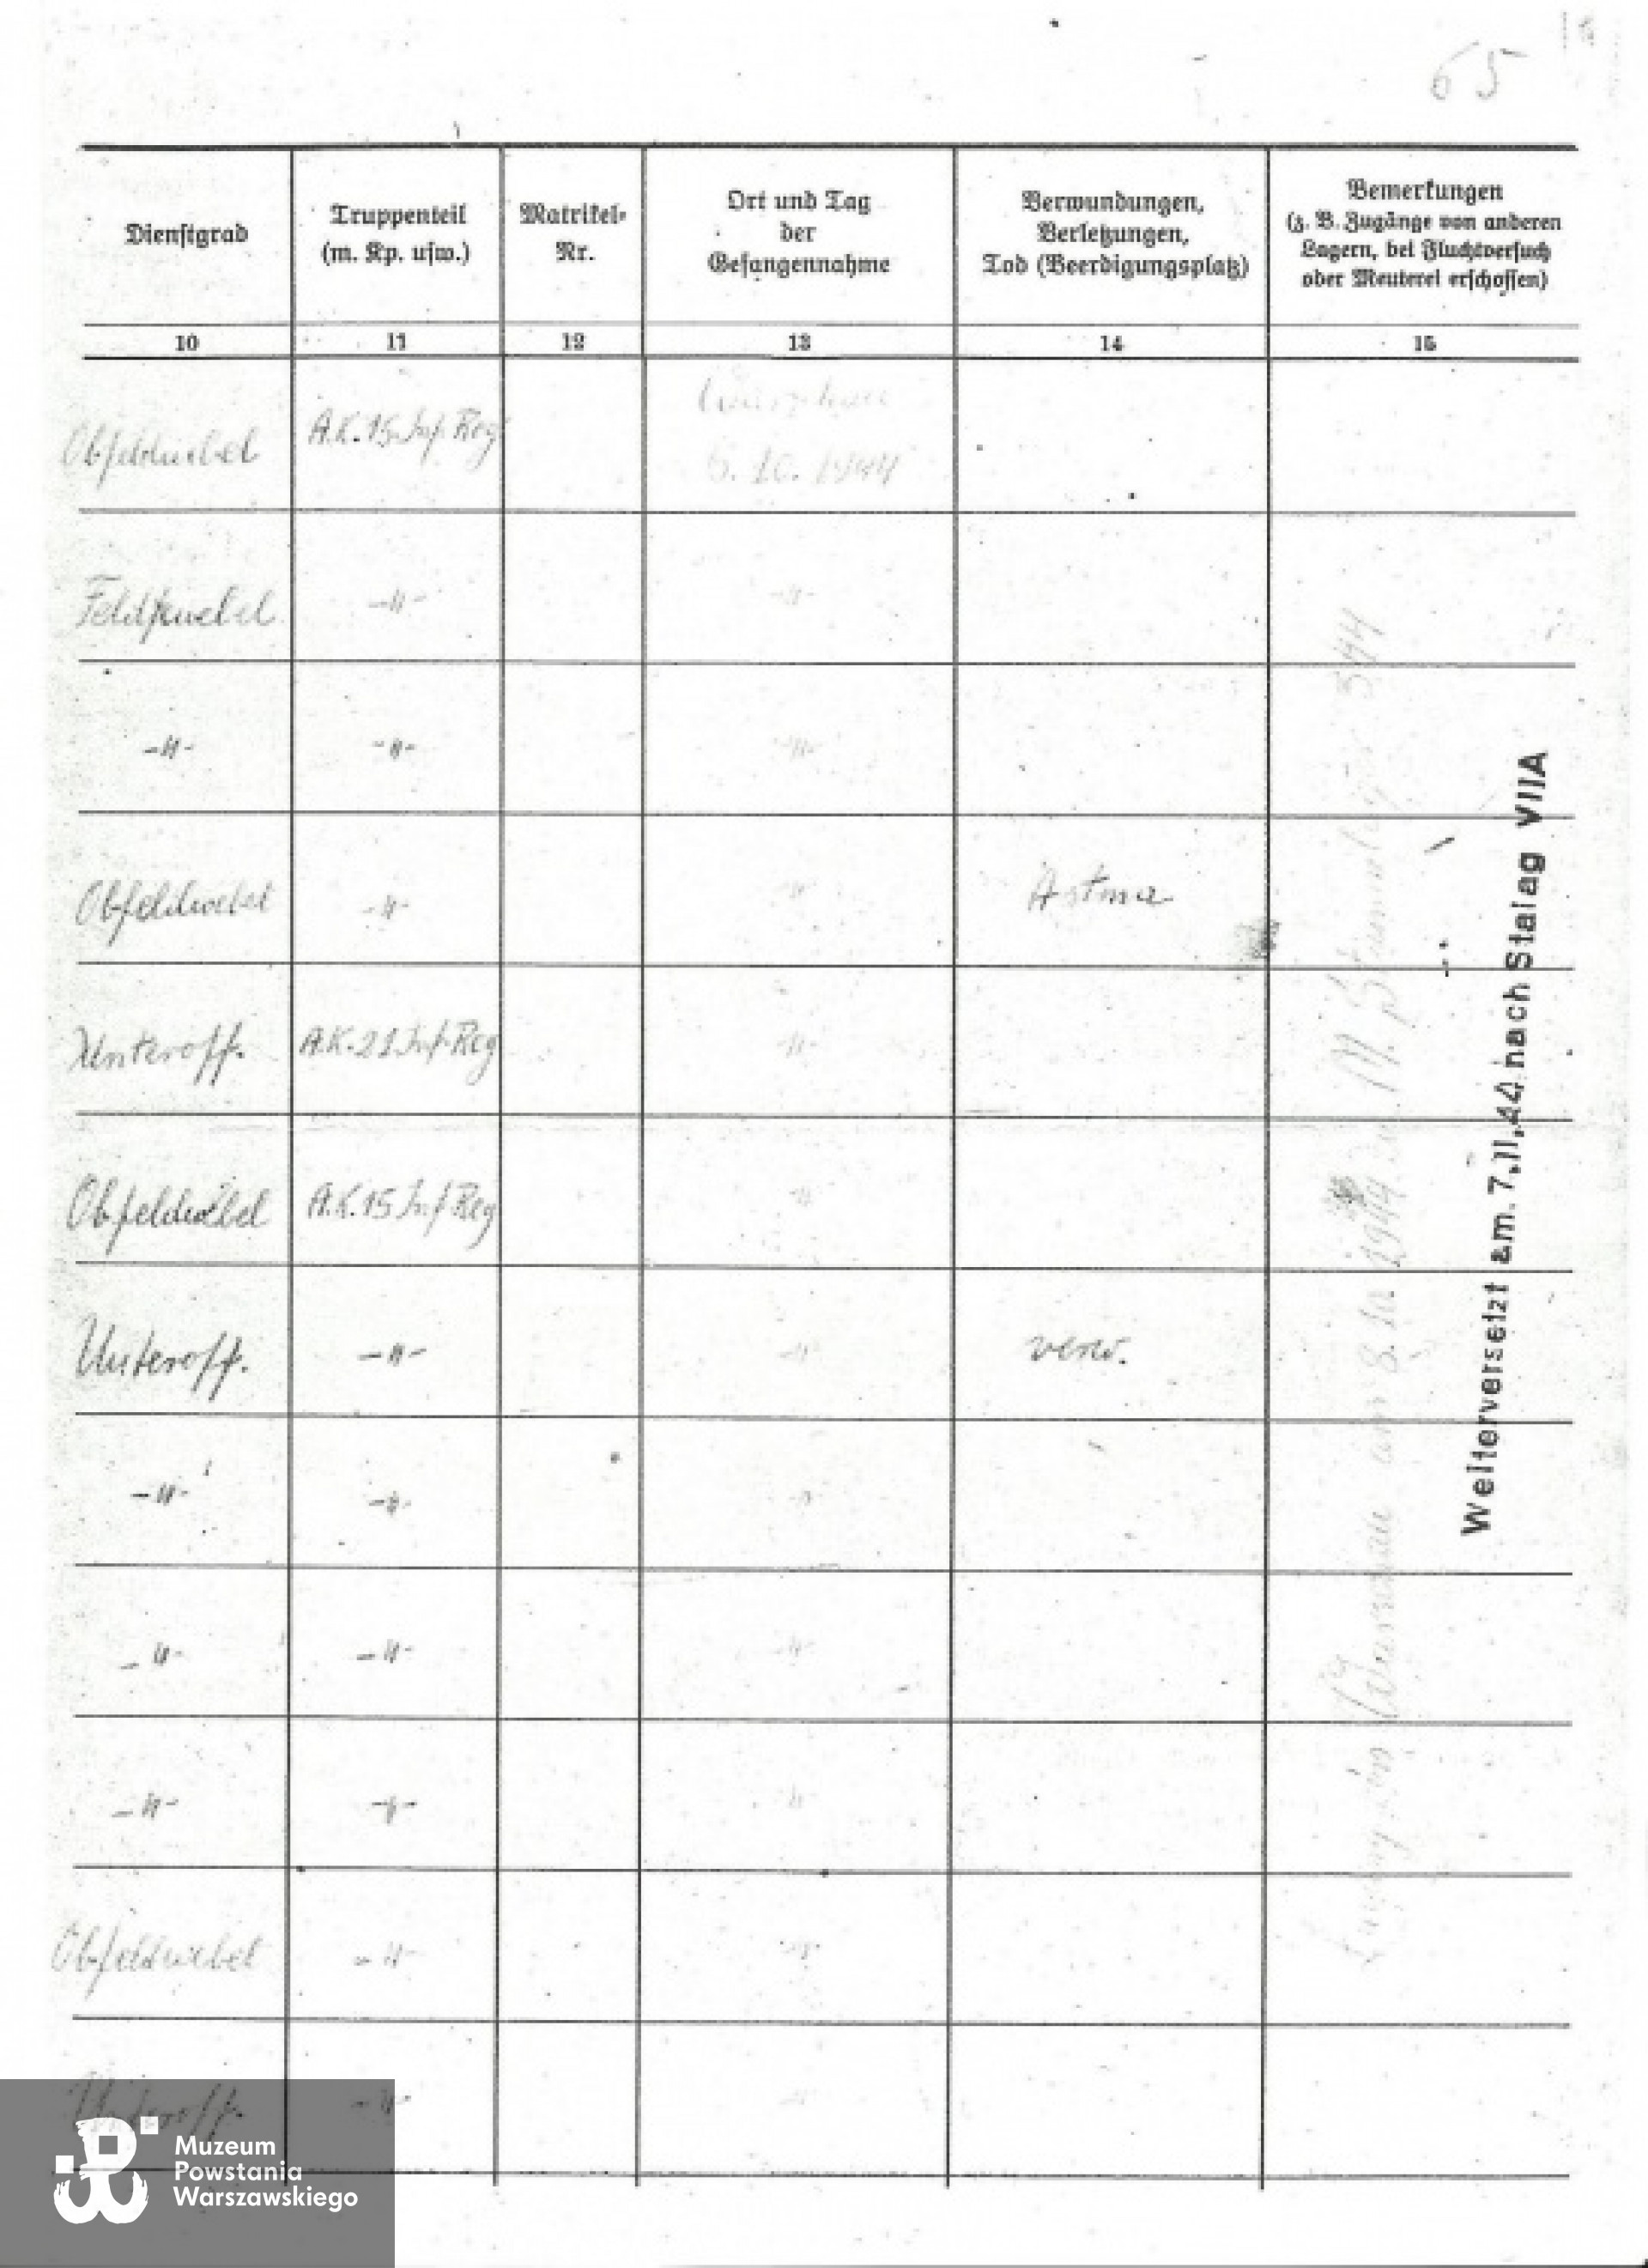 65
Dienstgrad
Truppenteil
(m. Kp. usw.)
Matrikel-
Nr.
Ort und Tag
der
Gefangennahme
Verwundungen,
Verletzungen,
Tod (Beerdigungsplatz)
Bemerkungen
(z. B. Zugänge von anderen
Lagern, bei Fluchtversuch
oder Meuterei erschossen)
10 11 12 13 14 15
Obfeldwebel A.K. 15. Inf. Reg Warschau
5. 10. 1944
Feldwebel -"- -"-
-"- -"- -"-
Obfeldwebel -"- -"- Astma
Unteroff. A.K. 21 Inf. Reg -"-
Obfeldwebel A.K. 15 Inf Reg -"-
Unteroff. -"- -"- verw.
-"- -"- -"-
-"- -"- -"-
-"- -"- -"-
Obfeldwebel -"- -"-
Unteroff. -"- -"-
Warschau am 8. 10. 1944 344
Weiterversetzt am. 7.11.44 nach Stalag VIIA
Muzeum
Powstania
Warszawskiego